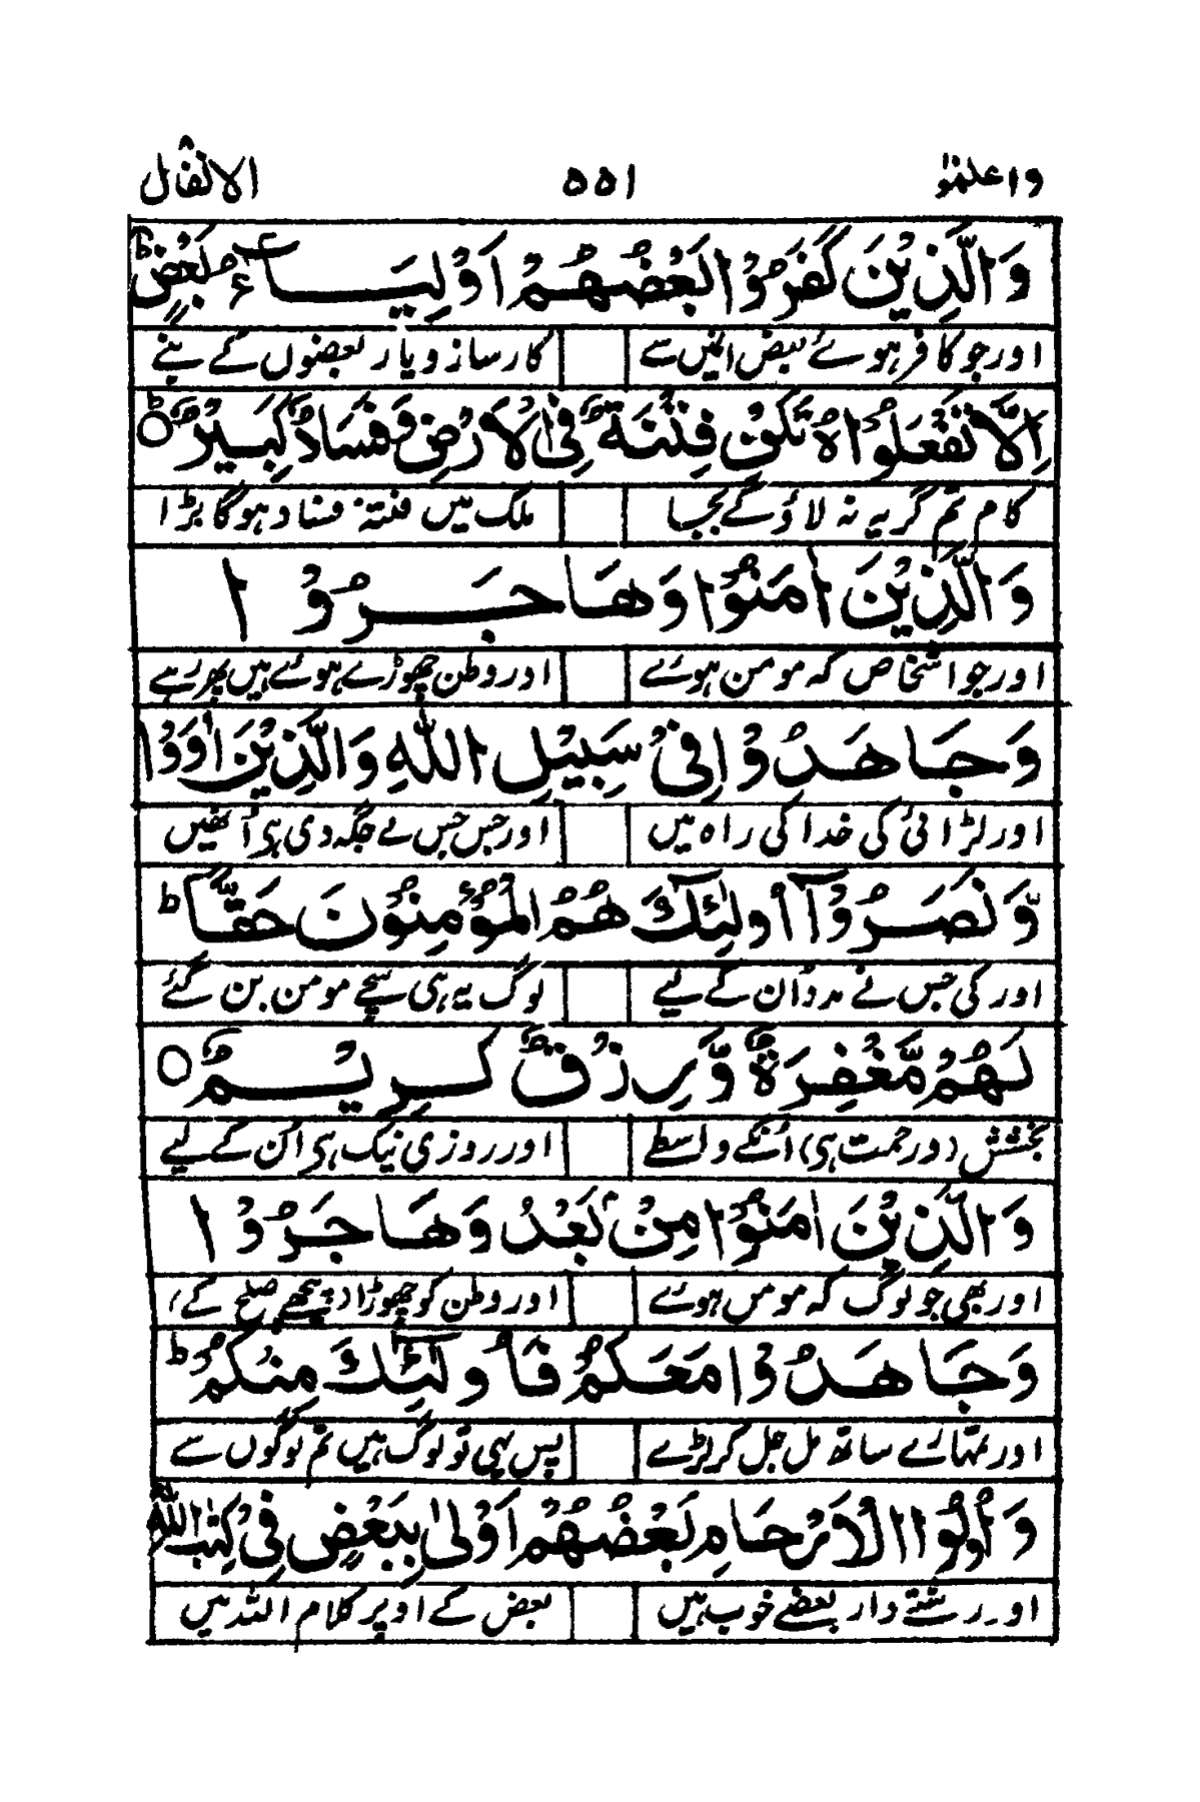 واعلموا ۵۵۱ الانفال
وَالَّذِيْنَ كَفَرُوْا بَعْضُهُمْ اَوْلِيَآءُ بَعْضٍ ؕ
اور جو کافر ہوئے بعض انمیں سے کارساز و یار بعضوں کے بنے
اِلَّا تَفْعَلُوْهُ تَكُنْ فِتْنَةٌ فِى الْاَرْضِ وَفَسَادٌ كَبِيْرٌ ؕ
کام تم گر یہ نہ لاؤ گے بجا ملک میں فتنہ فساد ہوگا بڑا
وَالَّذِيْنَ اٰمَنُوْا وَهَاجَرُوْا
اور جو اشخاص کہ مومن ہوئے اور وطن چھوڑے ہوئے ہیں پھر رہے
وَجَاهَدُوْا فِىْ سَبِيْلِ اللّٰهِ وَالَّذِيْنَ اٰوَوْا
اور لڑائی کی خدا کی راہ میں اور جس جس نے جگہ دی ہی اُنھیں
وَّنَصَرُوْۤا اُولٰٓئِكَ هُمُ الْمُؤْمِنُوْنَ حَقًّا ؕ
اور کی جس نے مدد اُن کے لیے لوگ یہ ہی سچے مومن بن گئے
لَهُمْ مَّغْفِرَةٌ وَّرِزْقٌ كَرِيْمٌ ۝
بخشش (و رحمت ہی) اُنکے واسطے اور روزی نیک ہی اُن کے لیے
وَالَّذِيْنَ اٰمَنُوْا مِنْۢ بَعْدُ وَهَاجَرُوْا
اور بھی جو لوگ کہ مومن ہوئے اور وطن کو چھوڑا پیچھے صلح کے
وَجَاهَدُوْا مَعَكُمْ فَاُولٰٓئِكَ مِنْكُمْ ؕ
اور تمہارے ساتھ مل جل کر لڑے پس یہی تو لوگ ہیں تم لوگوں سے
وَاُولُوا الْاَرْحَامِ بَعْضُهُمْ اَوْلٰى بِبَعْضٍ فِىْ كِتٰبِ اللّٰهِ
اور رشتے دار بعضے خوب ہیں بعض کے اوپر کلام اللہ میں